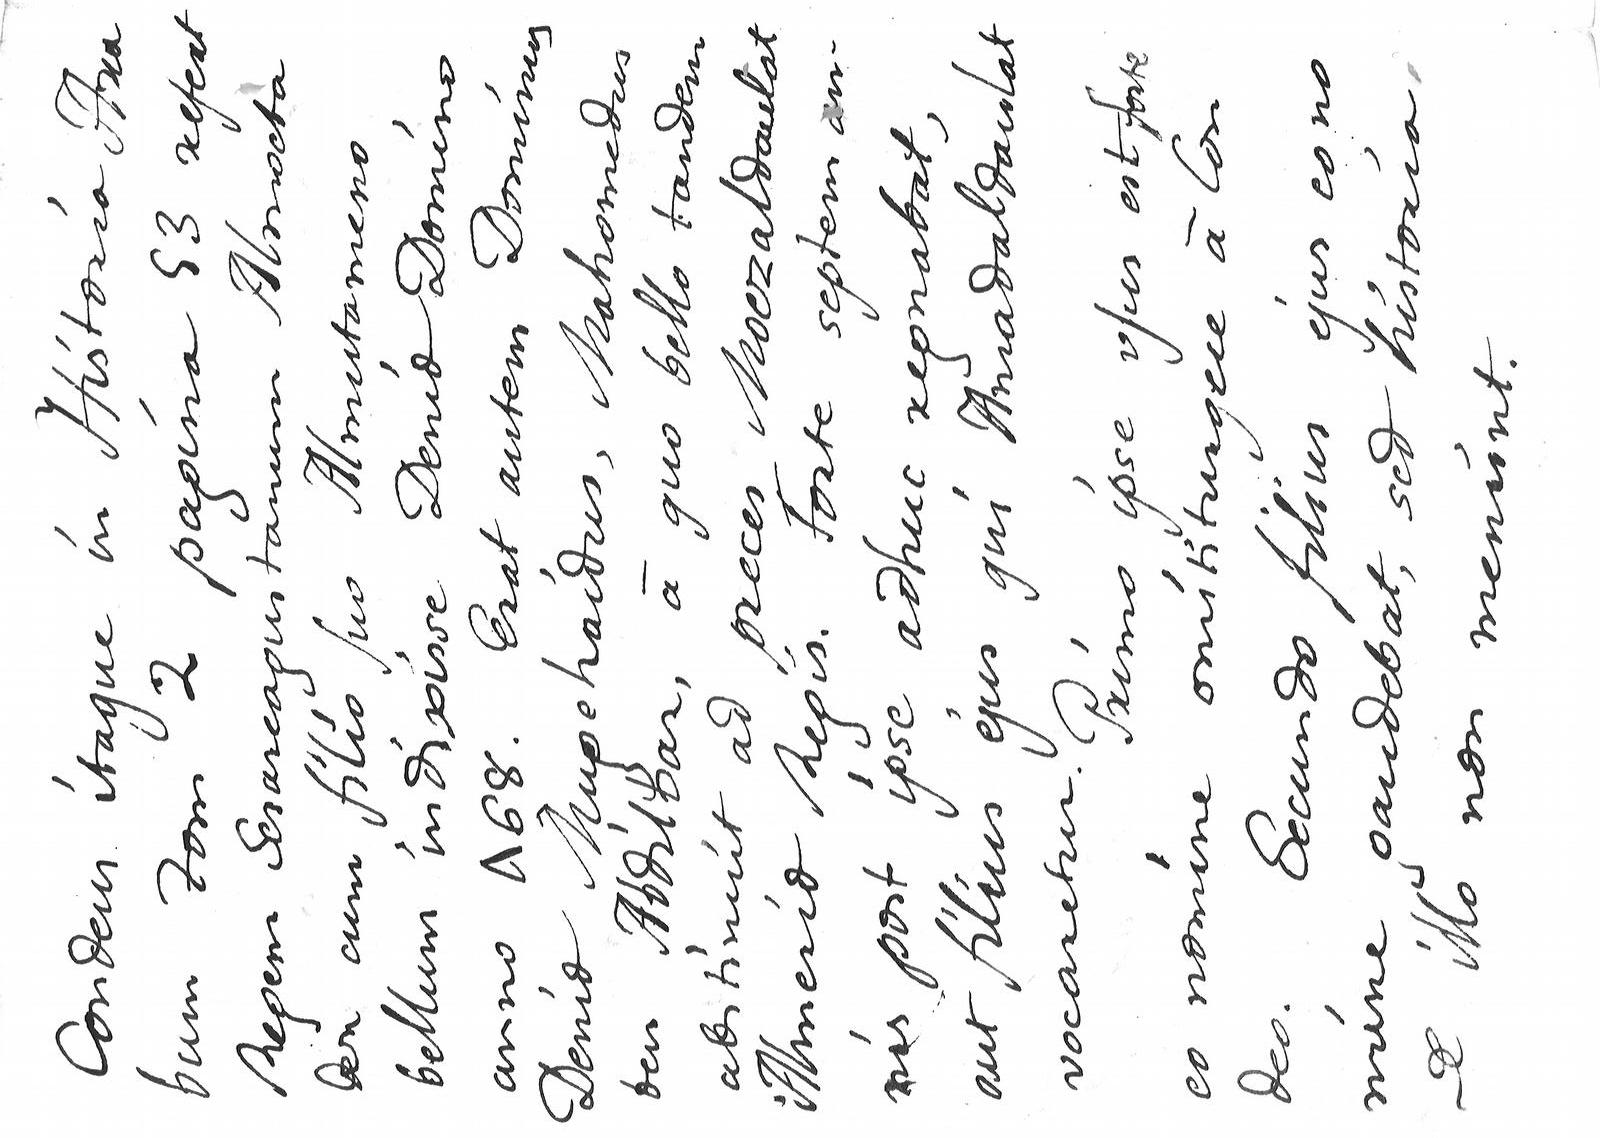 Condeus itaque in Historia Ara
bum Tom 2 pagina 53 refert
Regem Sesareagustanum Almocta
der cum filio suo Almutameno
bellum indixisse Deniâ Domino
anno 468. Erat autem Dominus
Deniâ Mugehaidus, Mahomedus
ben Abdilbar, â quo bello tandem
abstinuit ad preces Moezaldaulat
Almeriâ Regis. Forte septem an-
nis post ipse adhuc regnabat,
aut filius ejus qui Amadaldaulat
vocaretur. Primo ipse usus est forte
eo nomine omittiturque â Con
deo. Secundo filius ejus eo no
mine gaudebat, sed historia
illo non meminit.